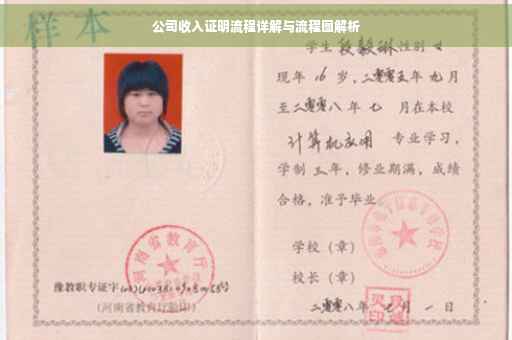 公司收入证明流程详解与流程图解析
样本
学生段毅琳性别女
现年16岁,二零零五年九月
至二零零八年七月在本校
计算机应用 专业学习,
学制三年,修业期满,成绩
合格,准予毕业。
学校(章)
校长(章)
二零零八年七月一日
河南省教育厅
豫教职专证字
(河南省教育厅验印)